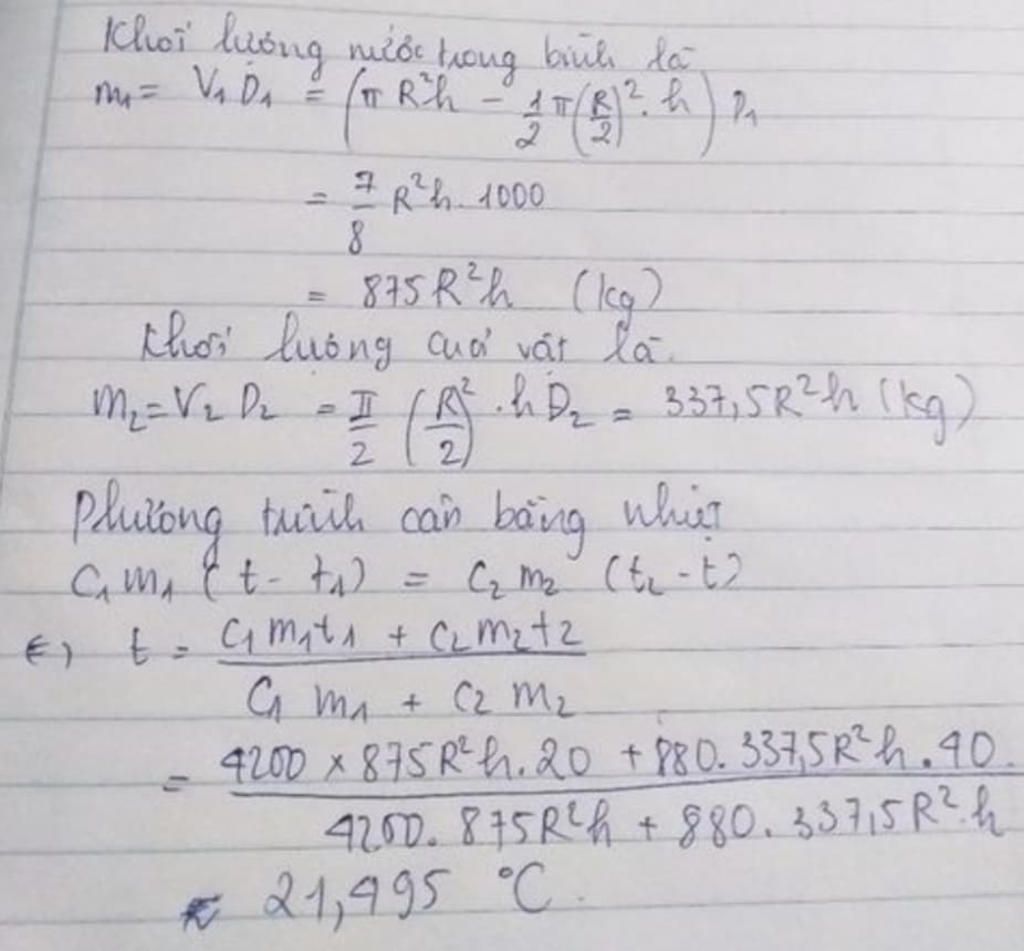 Khối lượng nước trong bình là
m₁ = V₁D₁ = (πR²h - 1/2 π(R/2)². h) D₁
= 7/8 R²h. 1000
= 875R²h (kg)
Khối lượng của vật là.
m₂ = V₂ D₂ = π/2 (R/2)² . h D₂ = 337,5R²h (kg)
Phương trình cân bằng nhiệt
C₁m₁ (t - t₁) = C₂m₂ (t₂ - t)
(=) t = (C₁m₁t₁ + C₂m₂t₂)/(C₁ m₁ + C₂ m₂)
= (4200 × 875R²h.20 + 880. 337,5R²h . 40.)/(4200. 875R²h + 880. 337,5R².h)
≈ 21,495 °C.